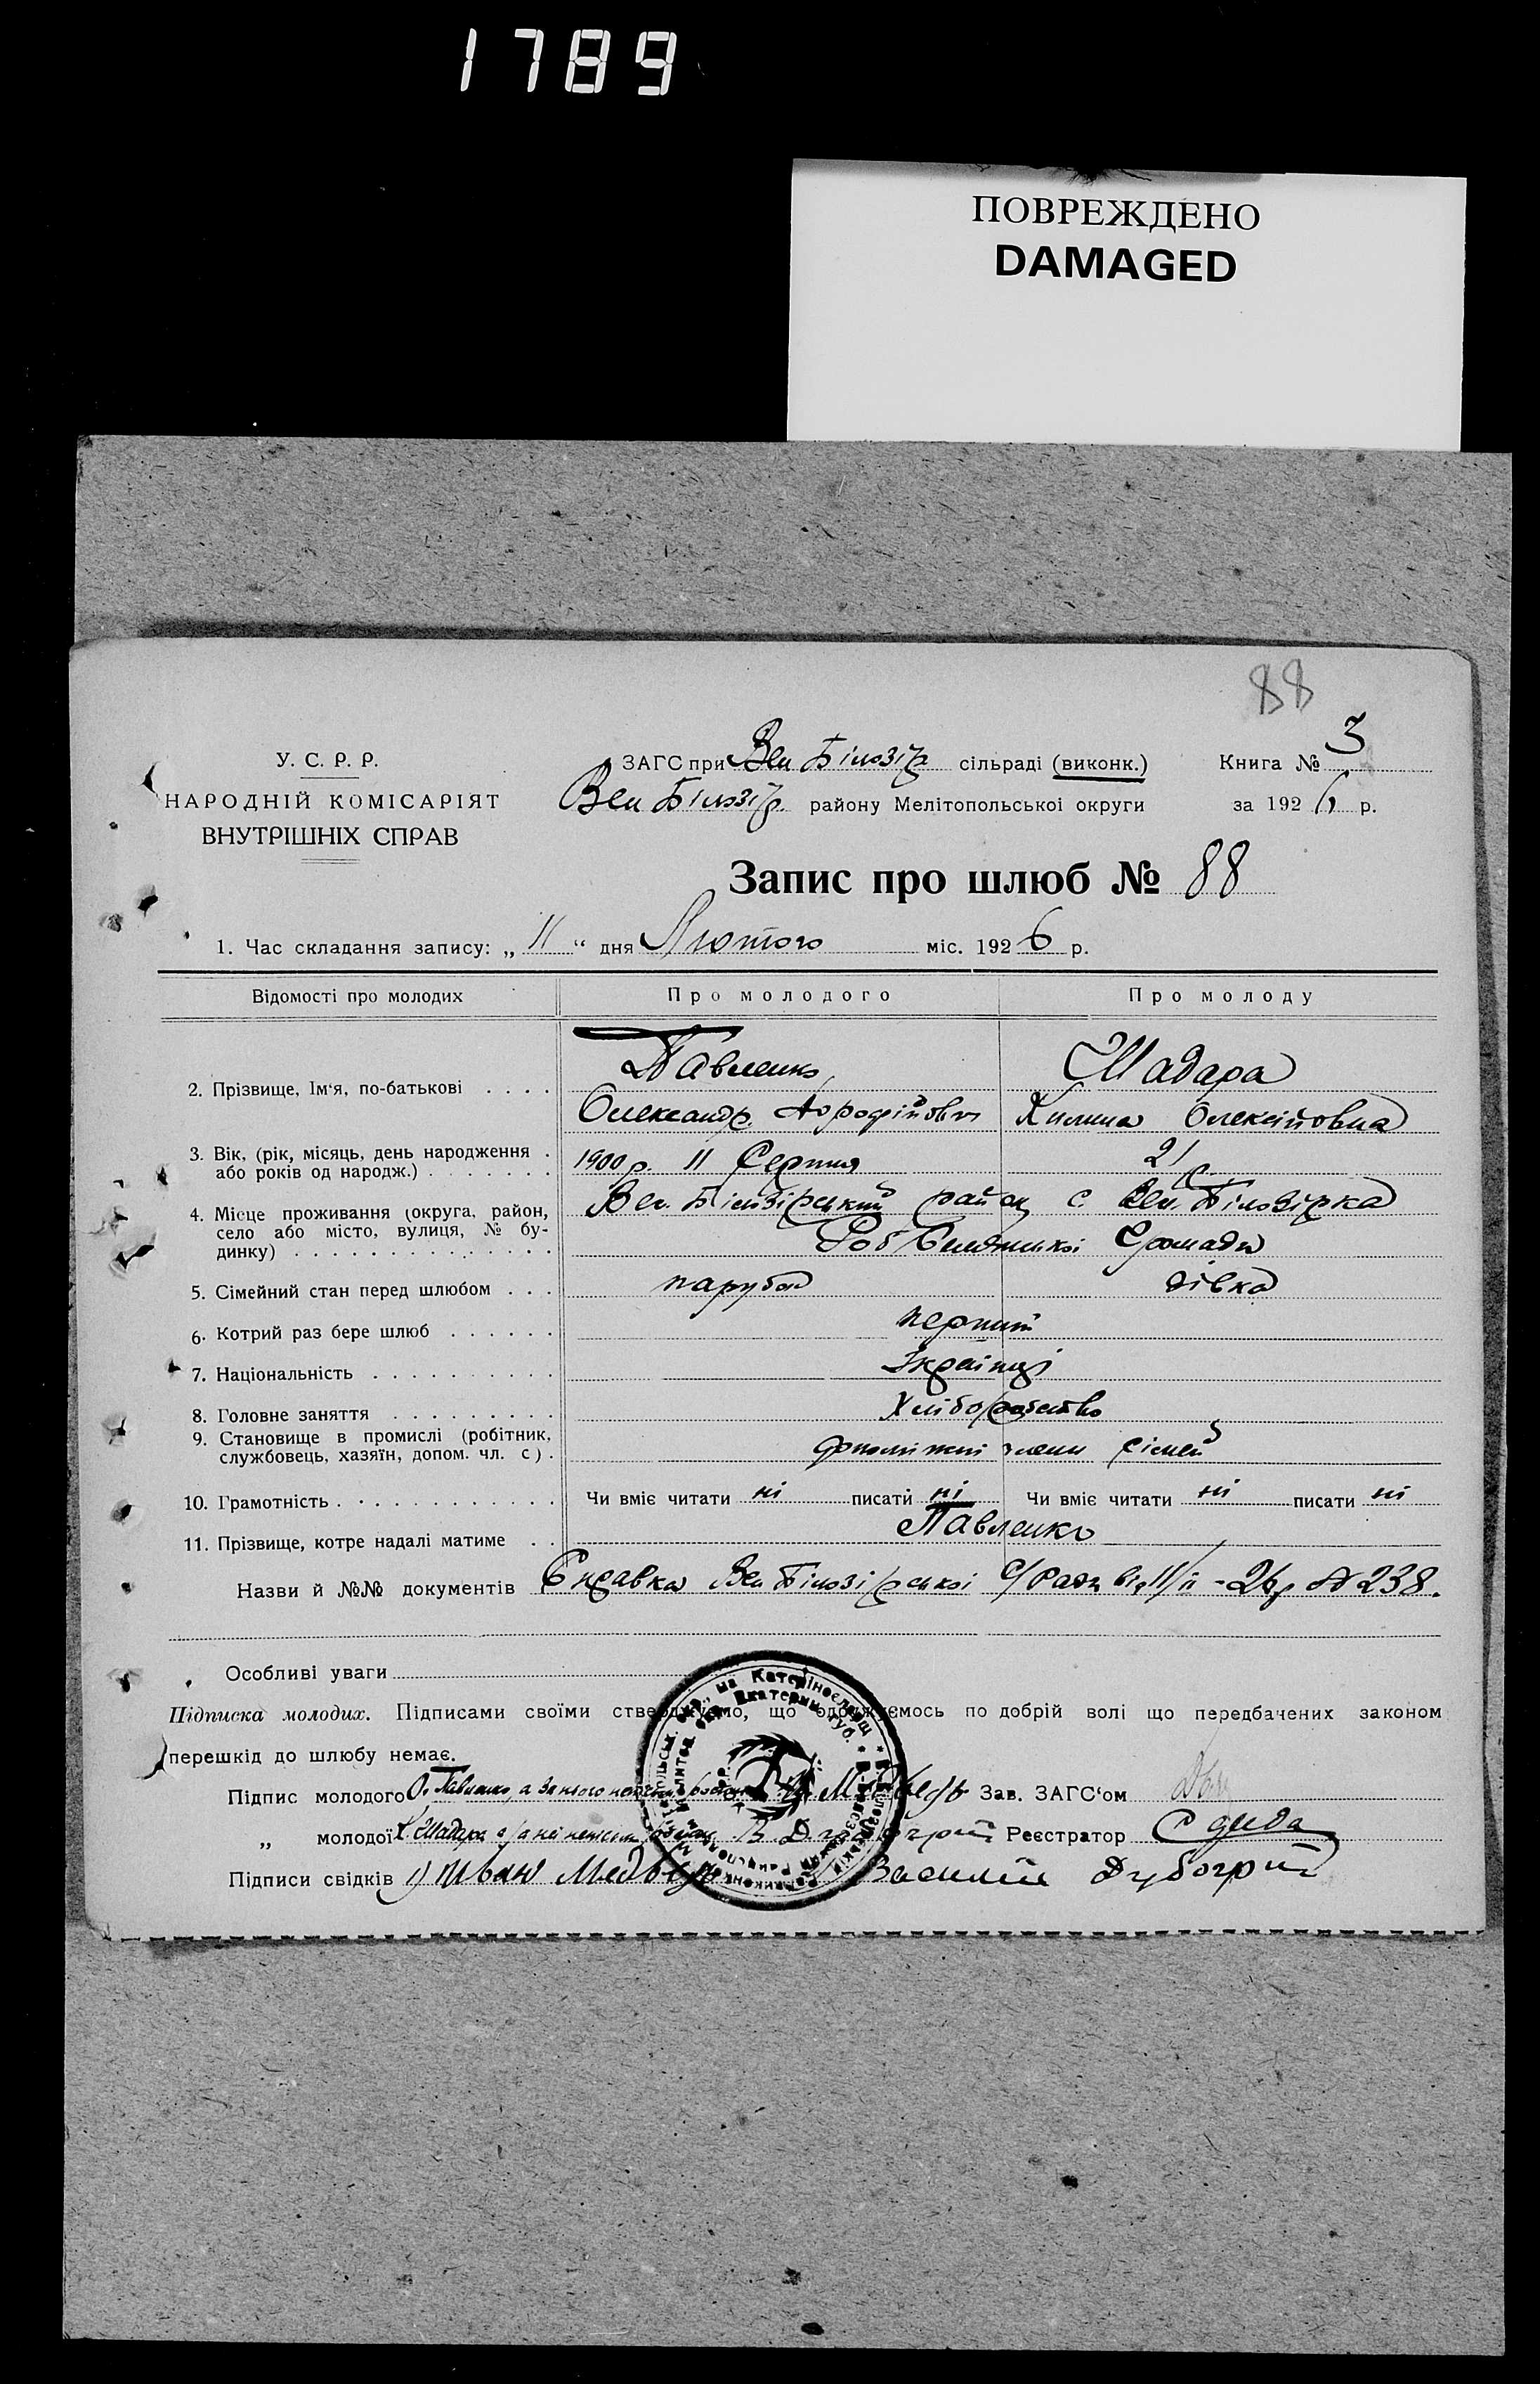 1789
ПОВРЕЖДЕНО
DAMAGED
88
У. С. Р. Р.
НАРОДНІЙ КОМІСАРІЯТ
ВНУТРІШНІХ СПРАВ
ЗАГС при Вел Білозір сільраді (виконк.)
Вел Білозір. району Мелітопольської округи
Книга № 3
за 1926 р.
Запис про шлюб № 88
1. Час складання запису: „ 11 “ дня Лютого міс. 1926 р.
Відомості про молодих Про молодого Про молоду
2. Прізвище, Ім‘я, по-батькові . . . . Павленко Шадара
Олександр Килина Олексіївна
3. Вік, (рік, місяць, день народження . 1900 р. 11 Серпня 21 р.
або років од народж.) . . . . . . .
4. Місце проживання (округа, район, Вел. Білозірський район с. Вел. Білозірка
село або місто, вулиця, № бу-
динку) . . . . . . . . . . . . . . Громади
5. Сімейний стан перед шлюбом . . . парубок дівка
6. Котрий раз бере шлюб . . . . . . перший
7. Національність . . . . . . . . . . Українці
8. Головне заняття . . . . . . . . . Хліборобство
9. Становище в промислі (робітник,
службовець, хазяїн, допом. чл. с) . допоміжні члени сімей
10. Грамотність . . . . . . . . . . . . Чи вміє читати ні писати ні Чи вміє читати ні писати ні
11. Прізвище, котре надалі матиме . . Павленко
Назви й №№ документів Справка Вел Білозірської с/Ради від 11/ІІ - 26р № 238.
Особливі уваги
Підписка молодих. Підписами своїми стверджуємо, що одружуємось по добрій волі що передбачених законом
перешкід до шлюбу немає.
Підпис молодого О. Павленко, а за нього Медведь Зав. ЗАГС‘ом
„ молодої К Шадара В. Реєстратор
Підписи свідків 1) Иван Медведь Василий Дубогрий